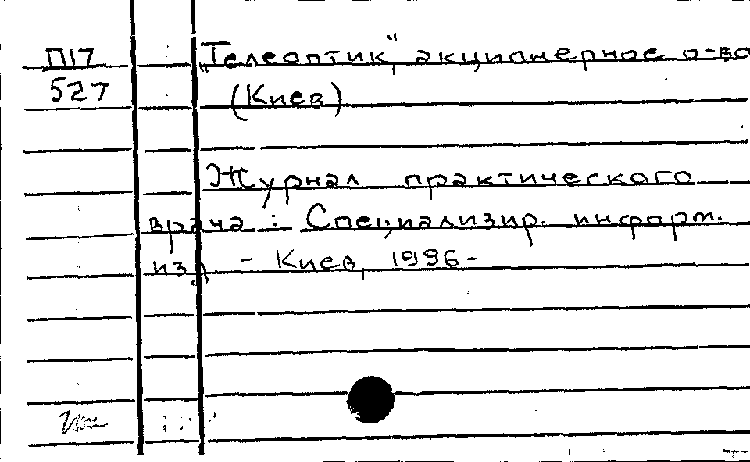 П17
527
„Телеоптик", акционерное о-во
(Киев)
Журнал практического
врача : Специализир. информ.
изд. - Киев, 1996-